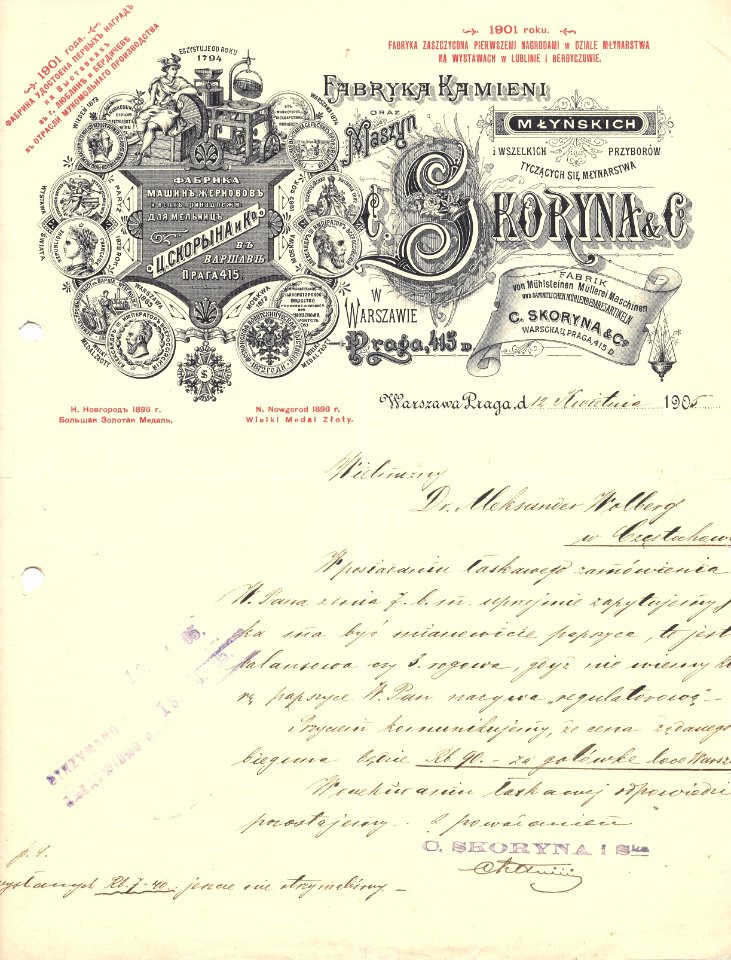 1901 года.
ФАБРИКА УДОСТОЕНА ПЕРВЫХЪ НАГРАДЪ
НА ВЫСТАВКАХЪ
ВЪ Г. ЛЮБЛИНѢ и БЕРДИЧЕВѢ
ВЪ ОТРАСЛИ МУКОМОЛЬНАГО ПРОИЗВОДСТВА
1901 roku.
FABRYKA ZASZCZYCONA PIERWSZEMI NAGRODAMI w DZIALE MŁYNARSTWA
NA WYSTAWACH w LUBLINIE i BERDYCZOWIE.
EGZYSTUJE OD ROKU
1794
ФАБРИКА
МАШИНЪ, ЖЕРНОВОВЪ
ДЛЯ МЕЛЬНИЦЪ
Ц. СКОРЫНА и Ко
ВЪ
ВАРШАВѢ
ПРАГА 415.
PARYŻ
1878 ROK
WARSZAWA
1885
МОСКВА
1882
FABRYKA KAMIENI
ORAZ
MŁYŃSKICH
Maszyn
i WSZELKICH PRZYBORÓW
TYCZĄCYCH SIĘ MŁYNARSTWA
C. SKORYNA & Co
W
WARSZAWIE
Praga, 415 D.
FABRIK
von Mühlsteinen Müllerei Maschinen
UND SÄMMTLICHEN MÜHLENBEDARFSARTIKELN
C. SKORYNA & Co
WARSCHAU, PRAGA, 415 D
Н. Новгородъ 1896 г.
Большая Золотая Медаль.
N. Nowgorod 1896 r.
Wielki Medal Złoty.
Warszawa Praga, d 12 Kwietnia 1905
Wielmożny
Dr. Aleksander Wolberg
w Częstochow
W posiadaniu łaskawego zamówienia
W. Pana z dnia 7. b. m. uprzejmie zapytujemy, j
ka ma być mianowicie paprzyca, tj. jest
balansowa czy 3. rogowa, gdyż nie wiemy kt
rą paprzyce W. Pan nazywa „regulatorową" –
Przyczem komunikujemy, że cena żądanego
bieguna będzie Rb 90. – za gotówkę loco Warsz
W oczekiwaniu łaskawej odpowiedzi
pozostajemy z poważaniem
C. SKORYNA i Ska
OTRZYMANO
ZAŁATWIONO d. 13. 4. 05.
p. s.
Rb. 7-40. jeszcze nie otrzymaliśmy. –